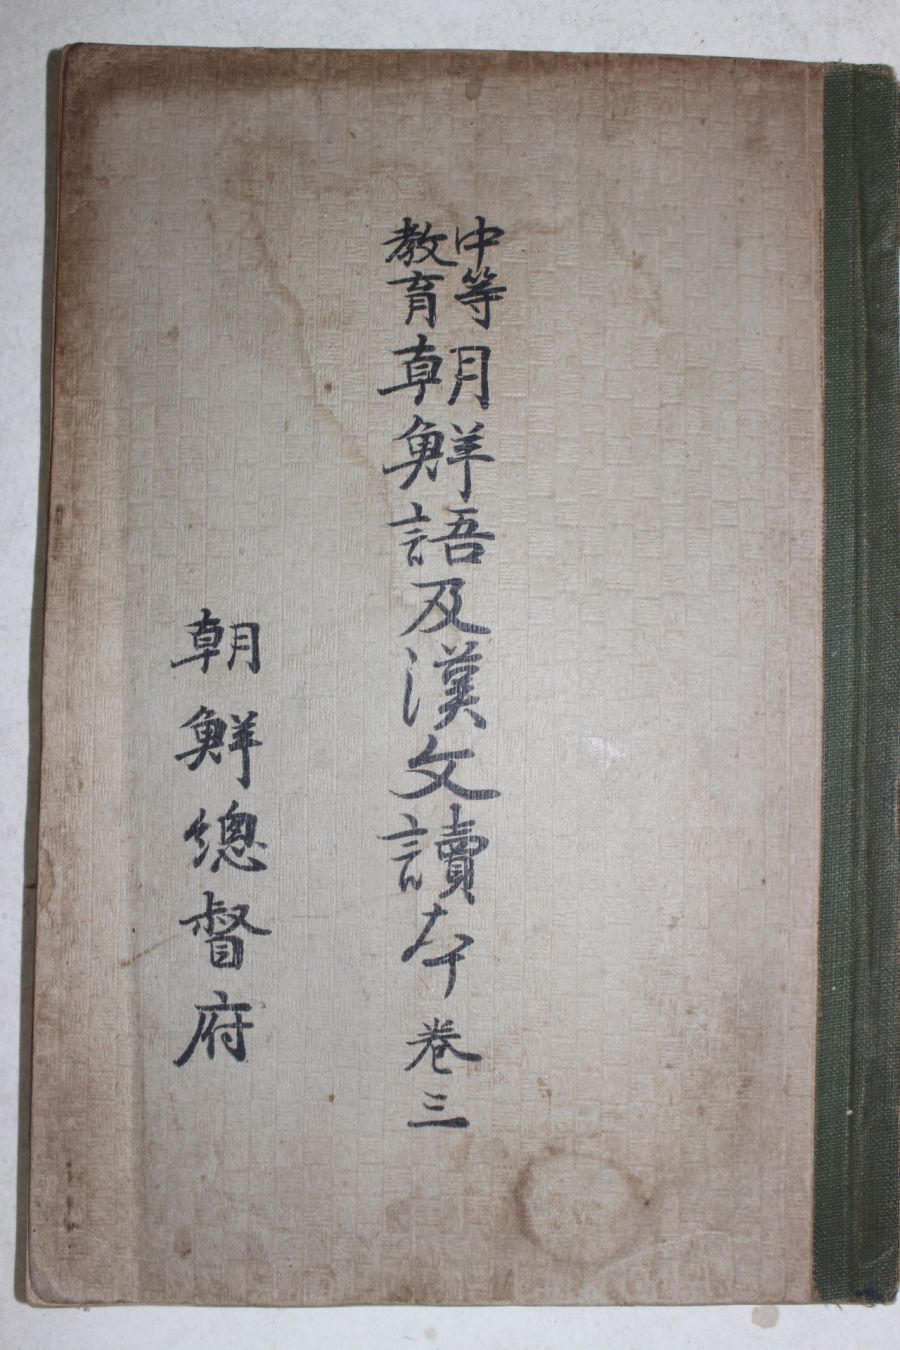 中等
教育
朝鮮語及漢文讀本 卷三
朝鮮總督府